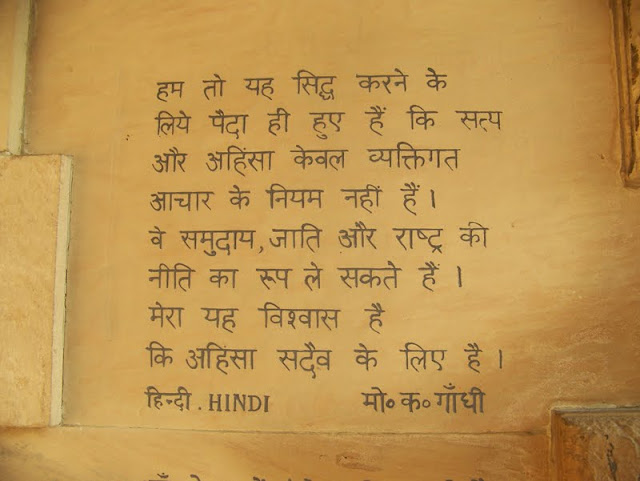 हम तो यह सिद्ध करने के
लिये पैदा ही हुए हैं कि सत्य
और अहिंसा केवल व्यक्तिगत
आचार के नियम नहीं हैं।
वे समुदाय, जाति और राष्ट्र की
नीति का रूप ले सकते हैं।
मेरा यह विश्वास है
कि अहिंसा सदैव के लिए है।
हिन्दी. HINDI मो० क० गाँधी